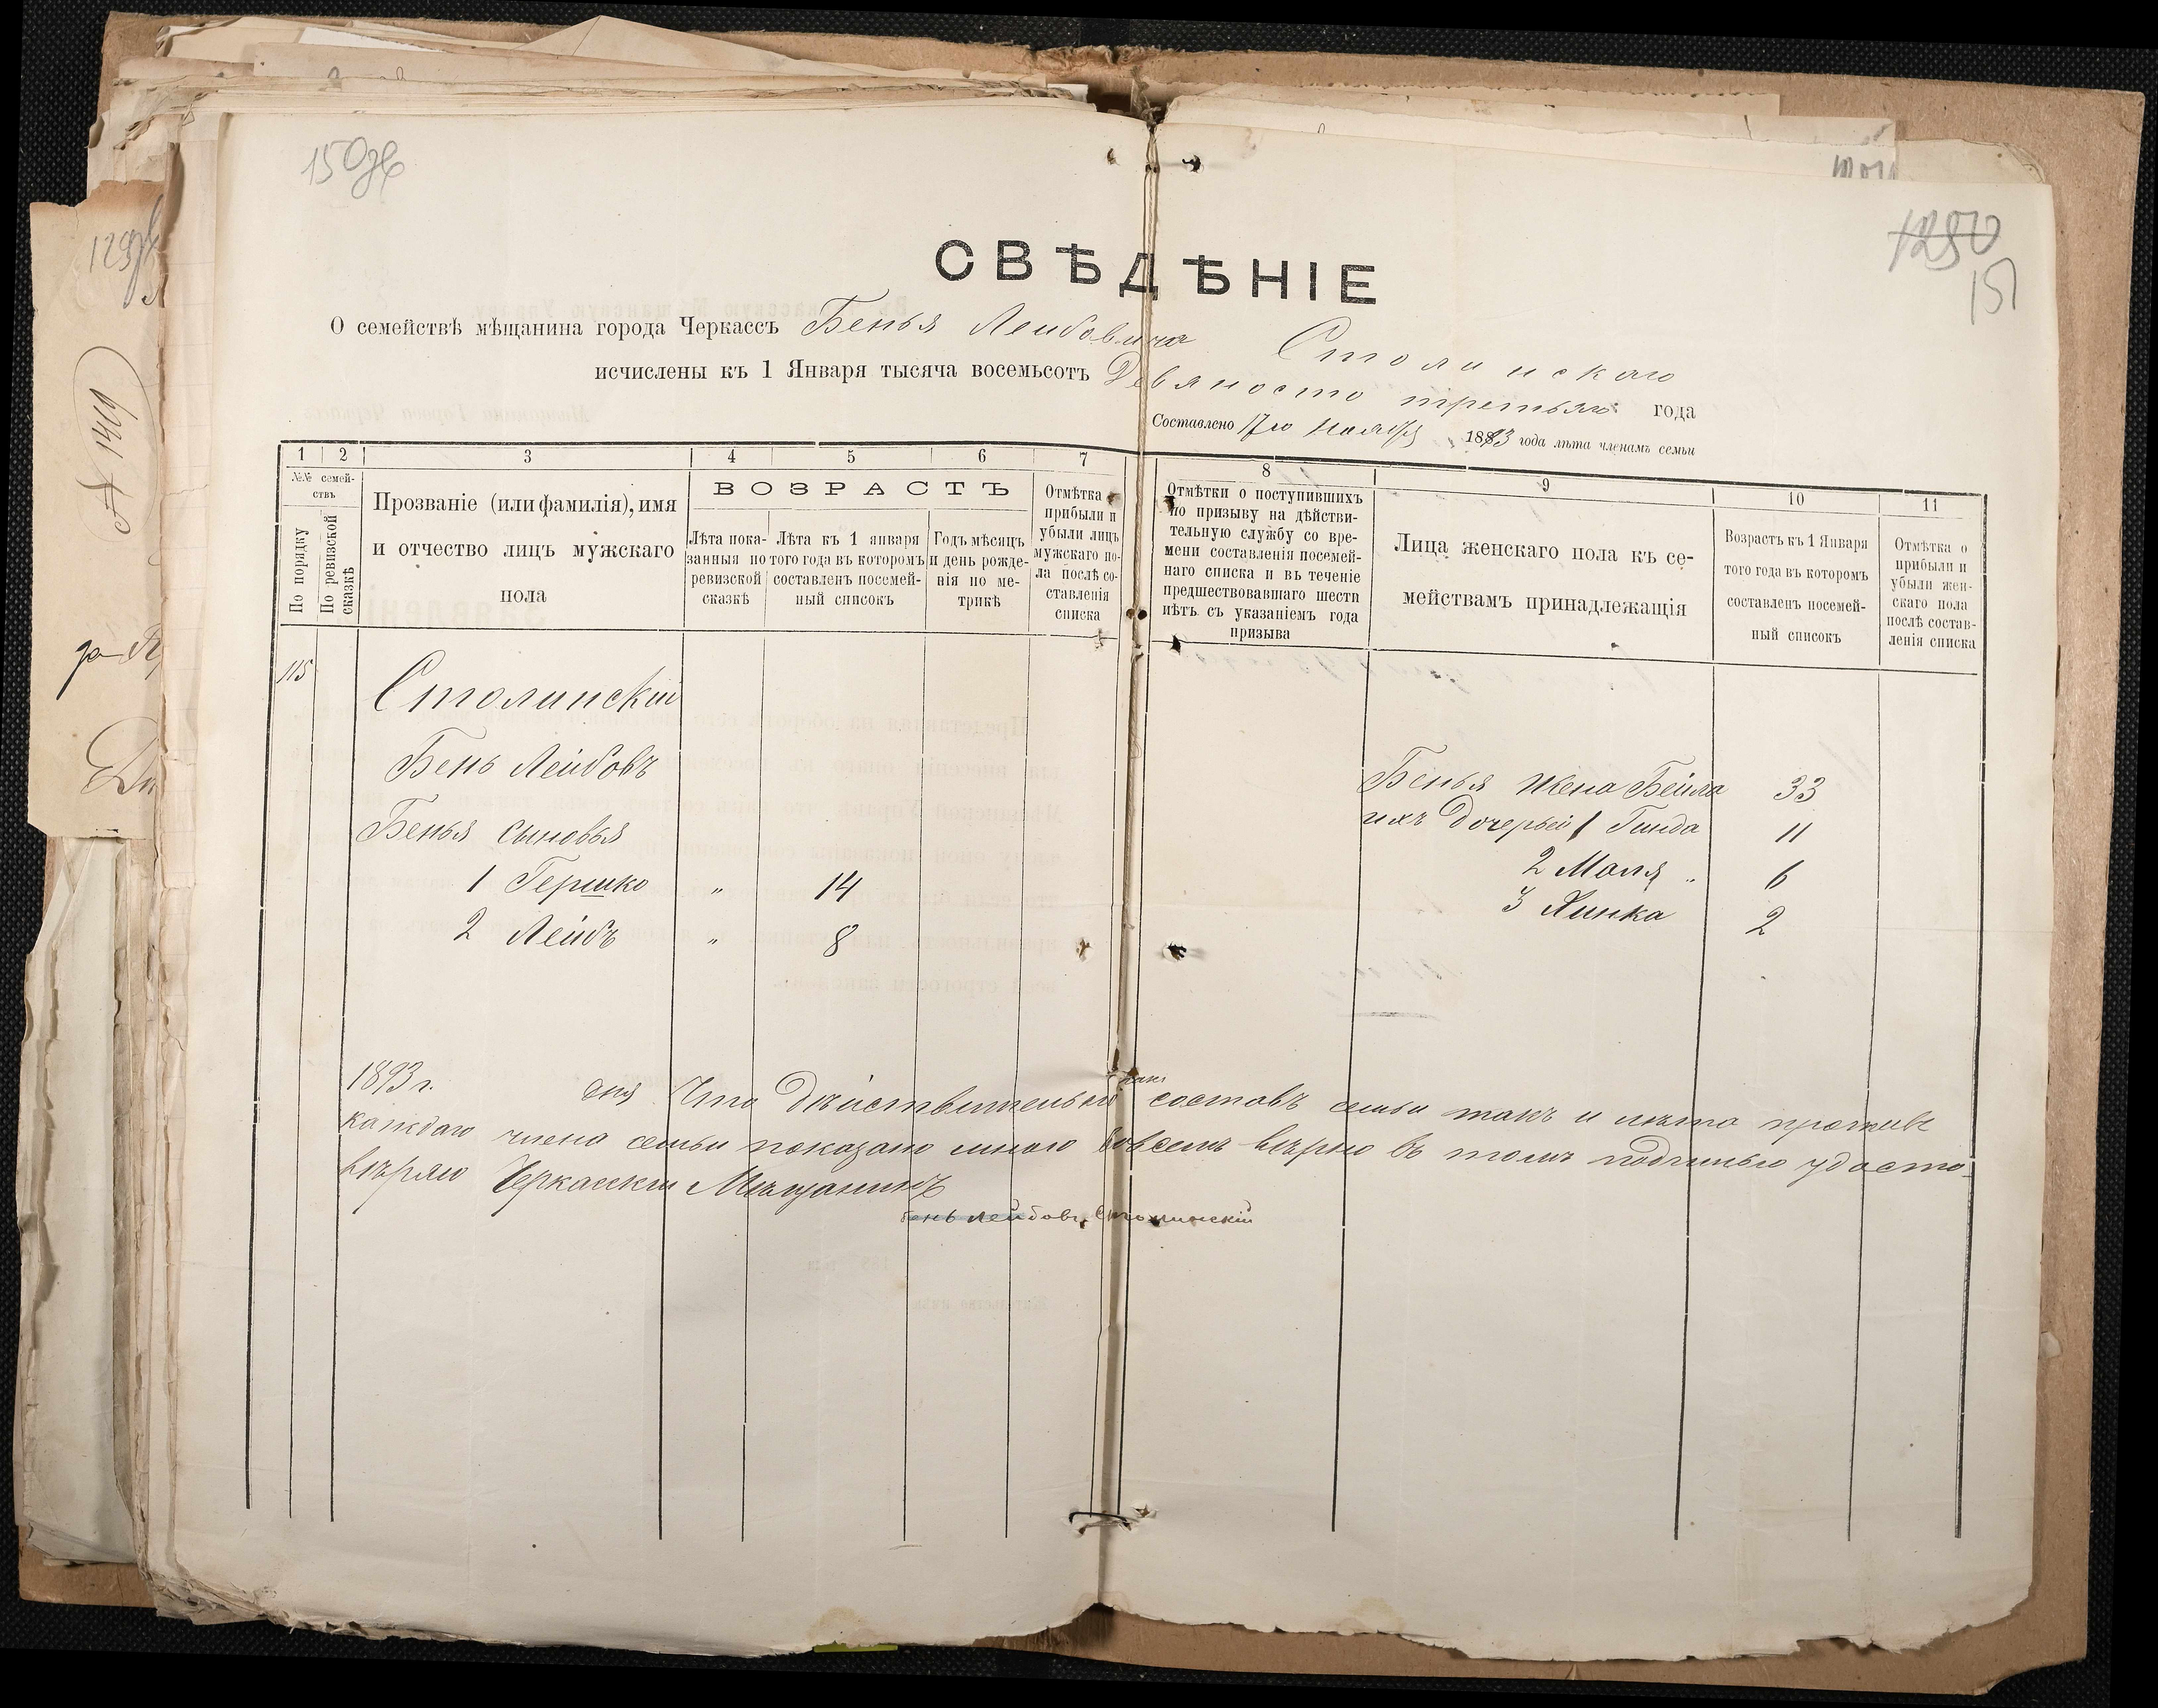 150
1250
151
№ 1419
СВѢДѢНІЕ
О семействѣ мѣщанина города Черкассъ Бенья Леибовича Столинскаго
исчислены къ 1 Января тысяча восемьсотъ Девяносто третьяго года
Составлено 17го Ноября 1893 года лѣта членамъ семьи
1 2 3 4 5 6 7 8 9 10 11
№№ семействъ
По порядку
По ревизской сказкѣ
Прозваніе (или фамилія), имя
и отчество лицъ мужскаго
пола
ВОЗРАСТЪ
Лѣта пока-
занныя по
ревизской
сказкѣ
Лѣта къ 1 января
того года въ которомъ
составленъ посемей-
ный списокъ
Годъ мѣсяцъ
и день рожде-
нія по ме-
трикѣ
Отмѣтка о
прибыли и
убыли лицъ
мужскаго по-
ла послѣ со-
ставленія
списка
Отмѣтки о поступившихъ
по призыву на дѣйстви-
тельную службу со вре-
мени составленія посемей-
наго списка и въ теченіе
предшествовавшаго шести
лѣтъ съ указаніемъ года
призыва
Лица женскаго пола къ се-
мействамъ принадлежащія
Возрастъ къ 1 Января
того года въ которомъ
составленъ посемей-
ный списокъ
Отмѣтка о
прибыли и
убыли жен-
скаго пола
послѣ состав-
ленія списка
115
Столинскій
Бень Лейбовъ
Бенья сыновья
1 Гершко " 14
2 Лейбъ " 8
Бенья жена Бейла 33
ихъ дочерьей 1 Гинда 11
2 Маля " 6
3 Хинка 2
1893 г. дня Что дѣйствительно какъ составъ семьи такъ и лѣта противъ
каждаго члена семьи показано мною вовсемъ вѣрно въ томъ подписью удосто-
вѣряю Черкасскій Мѣщанинъ
бень лейбовъ Столинскій